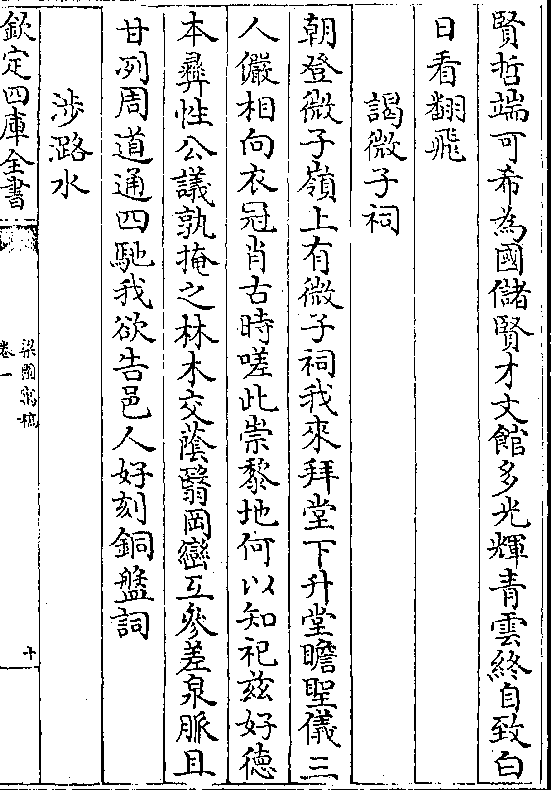 賢哲端可希為國儲賢才文館多光輝青雲終自致白
日看翻飛
謁微子祠
朝登微子嶺上有微子祠我來拜堂下升堂瞻聖儀三
人儼相向衣冠肖古時嗟此崇黎地何以知祀玆好德
本彞性公議孰掩之林木交蔭翳岡巒互參差泉脈且
甘冽周道通四馳我欲告邑人好刻銅盤詞
涉潞水
欽定四庫全書
梁園寓稿
卷一
十